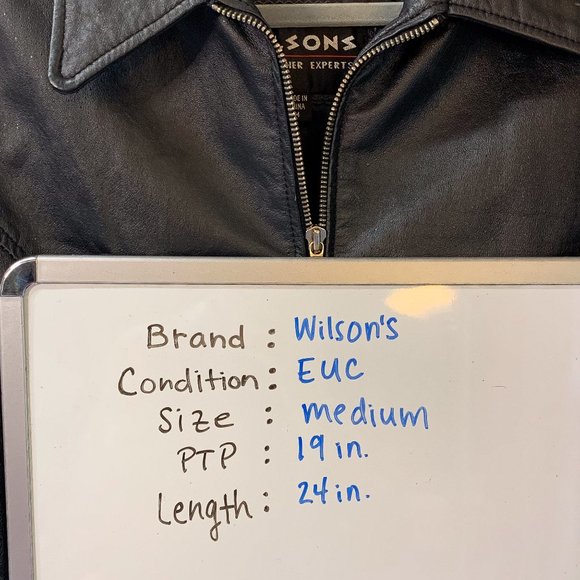 SONS
HER EXPERTS
Brand : Wilson's
Condition: EUC
Size : medium
PTP : 19 in.
Length: 24 in.